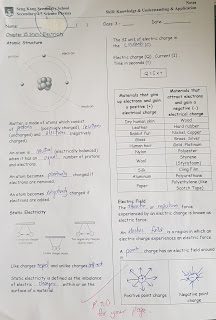 Seng Kang Secondary School
Secondary 4/5 Science Physics
Notes
Skills: Knowledge & Understanding & Application
Name:
Class: 3 -
Date:
Chapter
Static Electricity
Atomic Structure
Matter is made of atoms which consist
of protons (positively charged), neutrons
(uncharged) and electrons (negatively
charged).
An atom is neutral (electrically balanced)
when it has an equal number of protons
and electrons.
An atom becomes positively charged if
electrons are removed.
An atom becomes negatively charged if
electrons are added.
Static Electricity
Like charges repel and unlike charges attract
Static electricity is defined as the imbalance
of electric charges within or on the
surface of a material.
The SI unit of electric charge is
the coulomb (C).
Electric charge (Q), Current (I)
Time in seconds (t)
Q = I x t
Materials that give
up electrons and gain
a positive (+)
electrical charge
Materials that
attract electrons
and gain a
negative (-)
electrical charge
Dry human skin
Wood
Leather
Hard rubber
Rabbit fur
Nickel, Copper
Glass
Brass, Silver
Human hair
Gold, Platinum
Nylon
Polyester
Wool
Styrene
(Styrofoam)
Silk
Cling Film
Aluminium
Polyurethane
Paper
Polyethylene (like
Scotch Tape)
Electric Field
The attractive or repulsive force
experienced by an electric charge is known as
electric force.
An electric field is a region in which an
electric charge experiences an electric force.
A point charge has an electric field around
it
Positive point charge
Negative point
charge